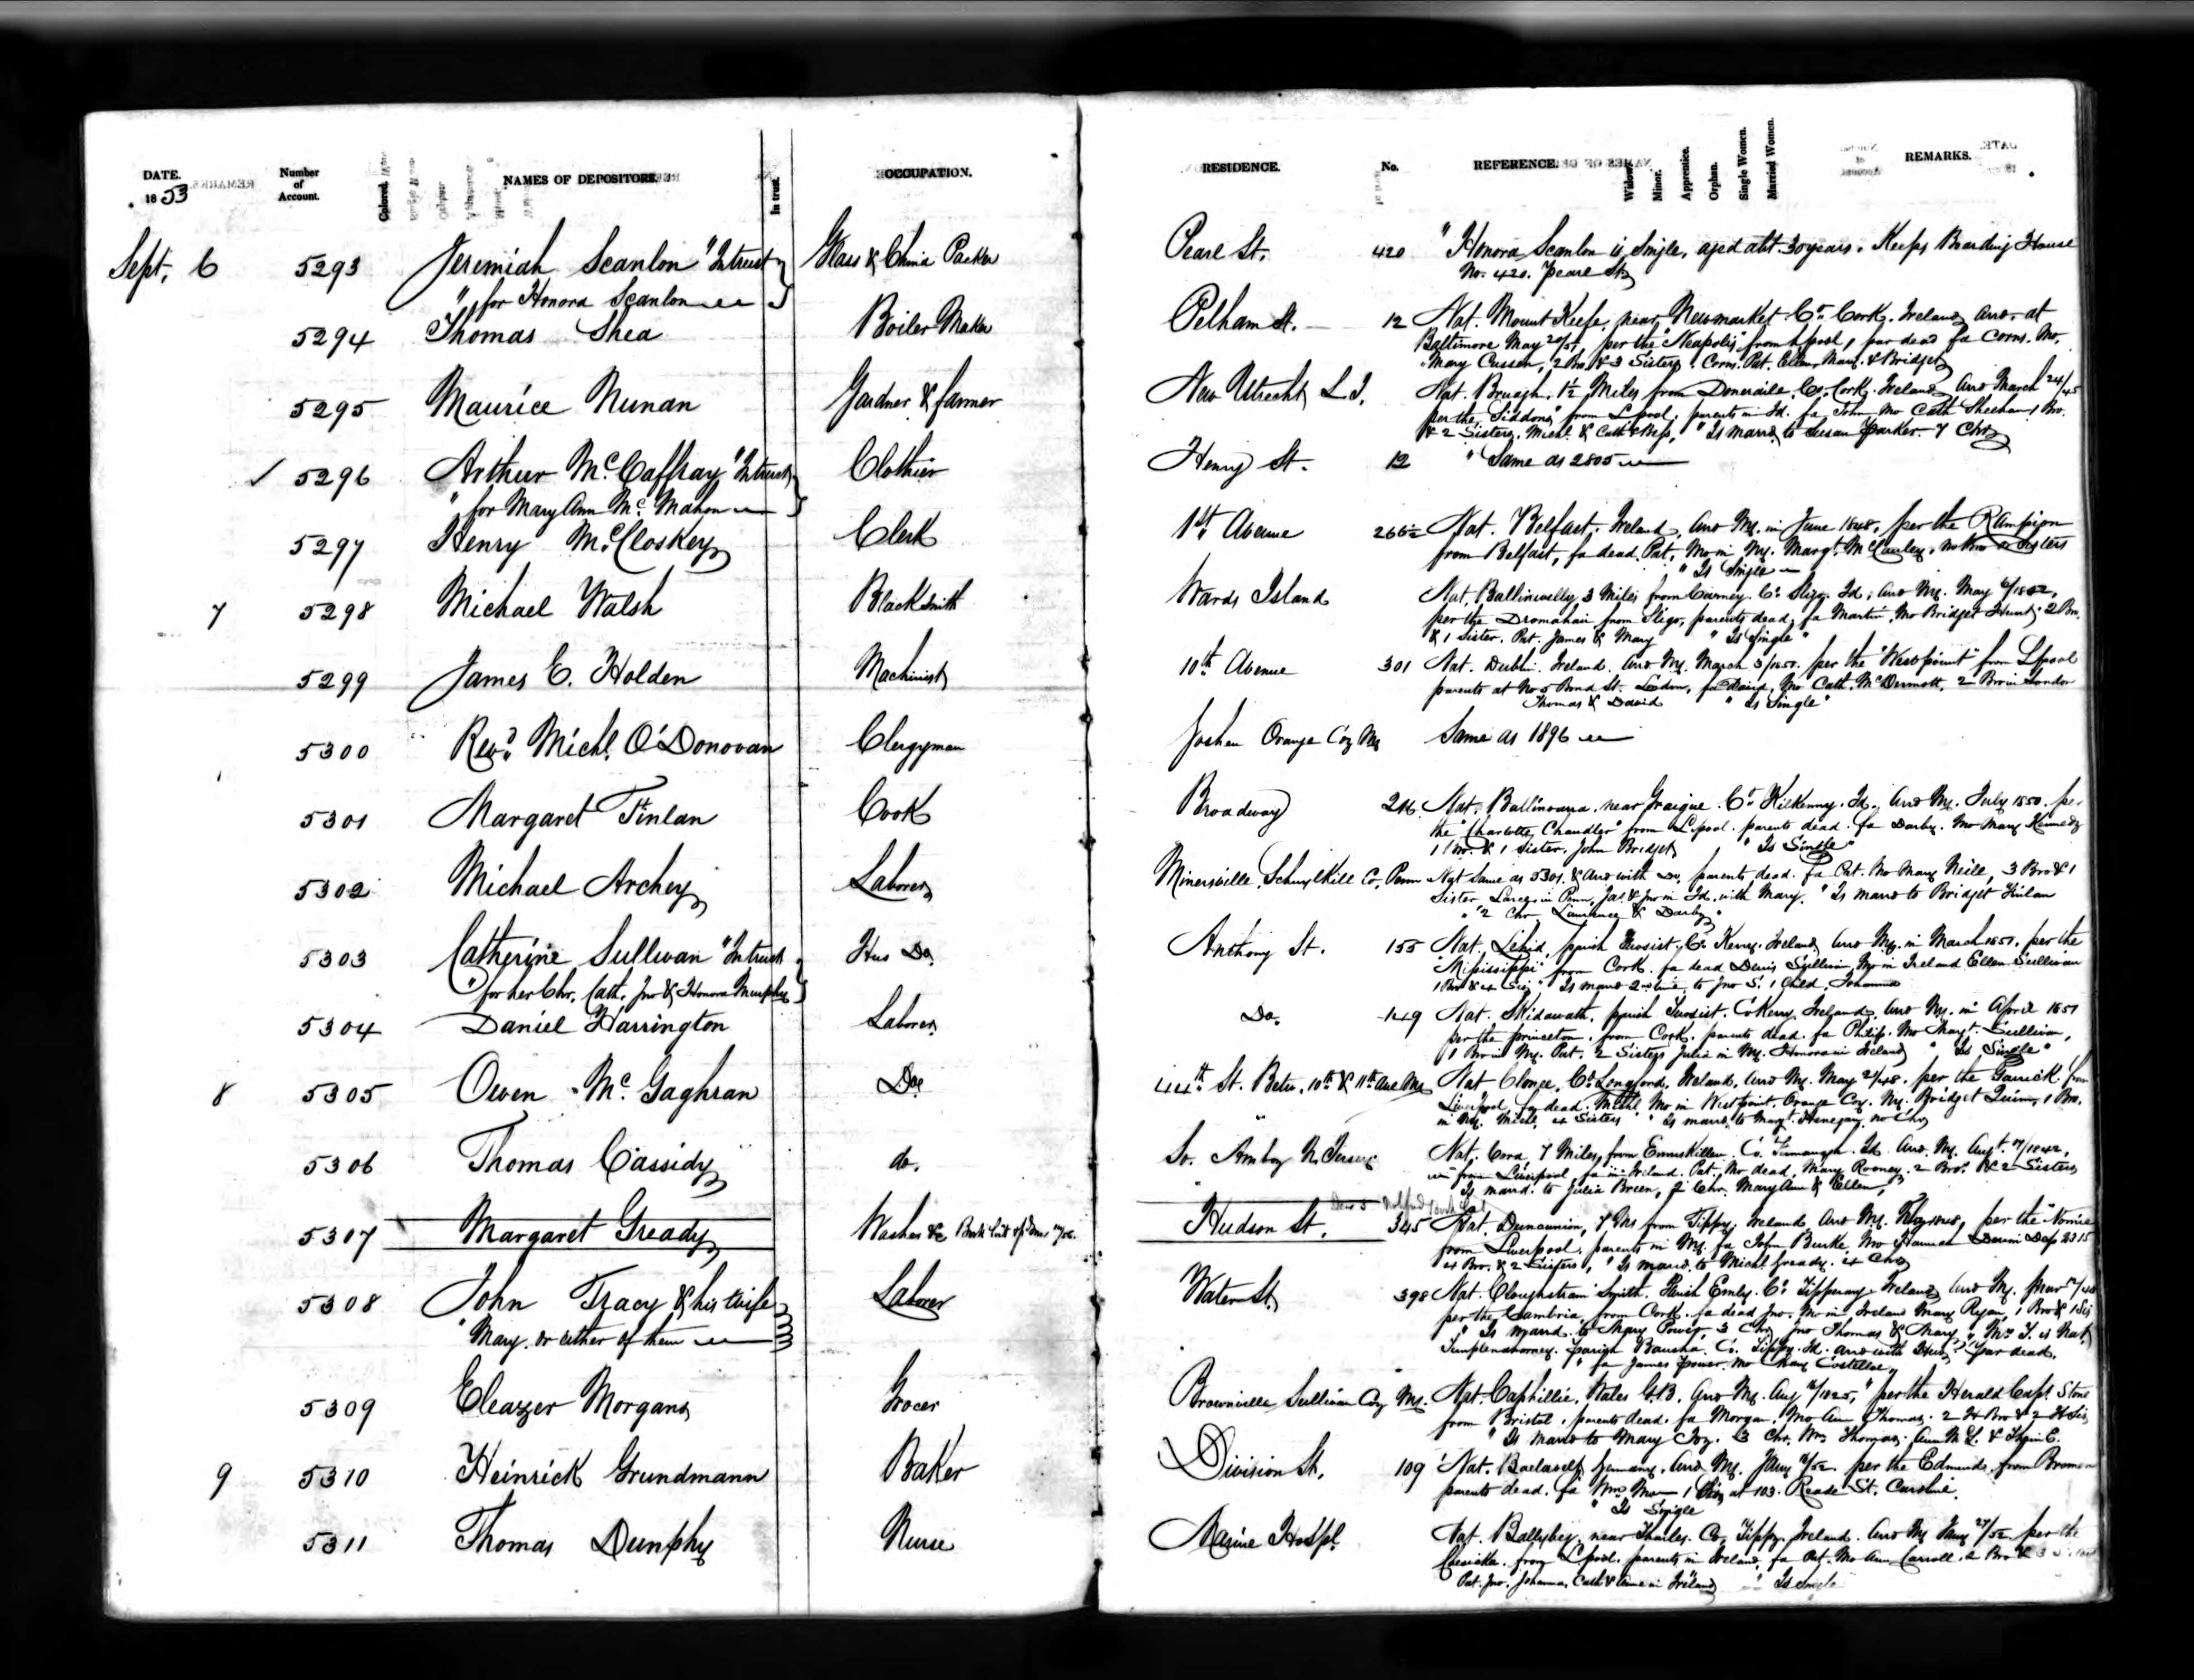 DATE. Number of Account. Colored. NAMES OF DEPOSITORS. In trust. OCCUPATION. RESIDENCE. No. REFERENCE. Widow. Minor. Apprentice. Orphan. Single Women. Married Women. REMARKS.
1853
Sept. 6 5293 Jeremiah Scanlon "Intrust Glass & China Packer Pearl St. 420 " Honora Scanlon is Single, aged abt 30 years. Keeps Boarding House
" for Honora Scanlon No. 420. Pearl St
5294 Thomas Shea Boiler Maker Pelham St. 12 Nat. Mount Keefe, near Newmarket Co. Cork. Ireland Arrd at
Baltimore May 20/51, per the "Neapolis" from Lpool, par dead fa Corns. Mo.
Mary Cussen, 2 Bro & 3 Sisters. Corns. Pat. Ellen, Mary & Bridget
5295 Maurice Nunan Gardner & farmer New Utrecht L I. Nat. Bruagh, 1½ Miles from Doneraile, Co. Cork. Ireland Arrd March 24/45
per the "Siddons" from Lpool, parents in Id. fa John Mo Cath Sheehan 1 Bro.
& 2 Sisters. Michl. & Cath & Bess, " Is marrd to Susan Parker. 7 Chr
✓ 5296 Arthur McCaffray "Intrust Clothier Henry St. 12 " Same as 2805
" for Mary Ann Mc.Mahon
5297 Henry McCloskey Clerk 1st Avenue 266½ Nat. Belfast. Ireland, Arrd Ny. in June 1848, per the Rampion
from Belfast, fa dead. Pat, Mo in Ny. Margt. McCauley, no Bro or Sisters
" Is Single
7 5298 Michael Walsh Blacksmith Wards Island Nat. 3 Miles from Carney. Co. Sligo. Id, Arrd Ny. May 1852,
per the Dromahair from Sligo, parents dead, fa Martin Mo Bridget Hunt. 2 Bro.
& 1 Sister. Pat. James & Mary " Is Single "
5299 James E. Holden Machinist 10th Avenue 301 Nat. Dublin. Ireland. Arrd Ny. March 3/1850. per the "Westpoint" from Lpool
parents at No 5 Bond St. London, fa David, Mo Cath. McDermott, 2 Bro in London
Thomas & David " Is Single"
5300 Revd. Michl. O'Donovan Clergyman Goshen Orange Coy Ny Same as 1896
5301 Margaret Finlan Cook Broadway Nat. near Graigue. Co. Kilkenny. Id. Arrd Ny. July 1850. per
the "Charlotte Chandler" from Lpool. parents dead. fa Darby. Mo Mary Kennedy
1 Bro. & 1 Sister, John Bridget " Is Single"
5302 Michael Archey Laborer Minersville, Schuylkill Co, Penn Nat same as 5301. & Arrd with Do, parents dead. fa Pat. Mo Mary Neill, 3 Bro & 1
Sister in Penn, Jas. & Jno in Id. with Mary. " Is marrd to Bridget Finlan
" 2 Chr Lawrence & Darby
5303 Catherine Sullivan "Intrust Hus Do. Anthony St. 155 Nat. parish Tuosist. Co. Kerry. Ireland Arrd Ny. in March 1851. per the
" for her Chr. Cath, Jno & Honora Murphy "Mississippi" from Cork. fa dead Denis Sullivan, Mo in Ireland Ellen Sullivan
1 Bro & 4 Sis, " Is marrd 2nd time to Jno S. 1 Child, Johanna
5304 Daniel Harrington Laborer Do. 149 Nat. parish Tuosist. Co Kerry. Ireland, Arrd Ny. in April 1851
per the princeton, from Cork. parents dead. fa Philip. Mo Margt. Sullivan,
1 Bro in Ny. Pat. 2 Sisters Julia in Ny. Honora in Ireland " Is Single"
8 5305 Owen McGaghran Do. 44th St. Betw. 10th & 11th Ave Ny Nat Clonge, Co. Longford, Ireland, Arrd Ny. May 2/48. per the Garrick from
Liverpool, fa dead. Michl. Mo in Westpoint, Orange Coy. Ny. Bridget Quinn, 1 Bro.
in Ny. Michl, 4 Sisters " Is marrd. to Margt. Hanegan, no Chr
5306 Thomas Cassidy do. So. Amboy N. Jersey Nat. Cora, 7 Miles from Enniskillen. Co. Fermanagh. Id. Arrd. Ny. Augt. 1842,
from Liverpool, fa in Ireland. Pat, Mo dead, Mary Rooney. 2 Bro. & 2 Sisters
Is marrd. to Julia Breen, 2 Chr. Mary Ann & Ellen,
5307 Margaret Gready Washer &c Hudson St. 345 Nat. 7 Ms from Tippy, Ireland, Arrd Ny. per the
from Liverpool. parents in Ny. fa John Burke. Mo
4 Bro. & 2 Sisters, " Is marrd. to Michl. Gready. 4 Chr
5308 John Tracy & his wife Laborer Water St. 398 Nat. Parish Emly. Co. Tipperary. Ireland Arrd Ny.
Mary, or either of them per the Cambria from Cork. fa dead Jno. Mo in Ireland Mary Ryan, 1 Bro & 1 Sis
" Is marrd. to Mary Power, 3 Chr Jno Thomas & Mary, " Mrs T. is Nat.
parish Bansha. Co. Tippy. Id. arrd with Hus. par dead.
" fa James Power. Mo Mary Costelloe
5309 Eleazer Morgans Grocer Brownville Sullivan Coy Ny. Nat. Caphillie, Wales G.B. Arrd Ny. Aug 1825, per the Herald Capt. Stone
from Bristol. parents dead. fa Morgan. Mo Ann Thomas. 2 H Bro & 2 H Sis
" Is marrd to Mary Joy. 3 Chr. Wm Thomas, Ann M L. &
9 5310 Heinrick Grundmann Baker Division St. 109 Nat. Germany. Arrd Ny. Jany /52. per the Edmunds from Bremen
parents dead. fa Wm. Mo 1 Sis at 103. Reade St. Caroline.
" Is Single
5311 Thomas Dunphy Nurse Marine Hospl. Nat. Ballybeg, near Thurles. Co, Tippy. Ireland. Arrd Ny Jany 27/52 per the
from Lpool. parents in Ireland, fa Pat. Mo Ann Carroll. 2 Bro & 3
Pat. Jno. Johanna, Cath & Anne in Ireland " Is Single